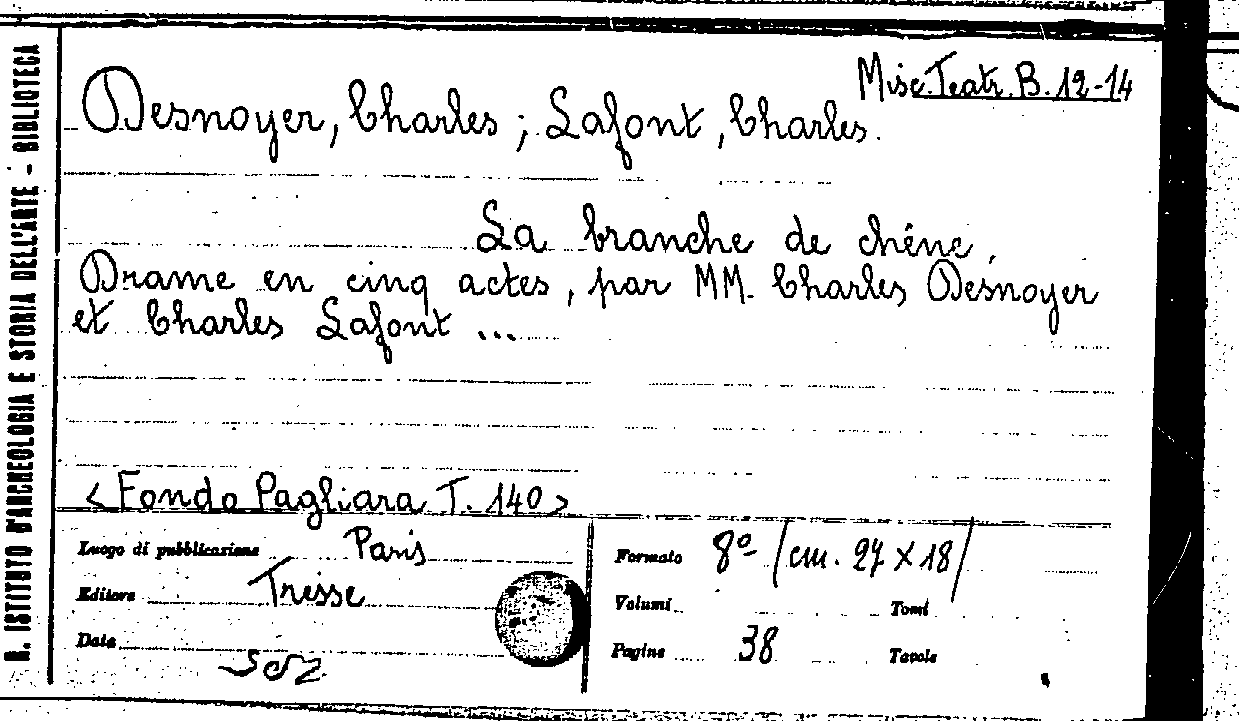 Misc. Teatr. B. 12-14
Desnoyer, Charles ; Lafont, Charles.
La branche de chêne.
Drame en cinq actes, par MM. Charles Desnoyer
et Charles Lafont ...
<Fondo Pagliara T. 140>
Luogo di pubblicazione Paris
Editore Tresse
Data
Formato 8º /cm. 27 x 18/
Volumi Tomi
Pagine 38 Tavole
R. ISTITUTO D'ARCHEOLOGIA E STORIA DELL'ARTE - BIBLIOTECA